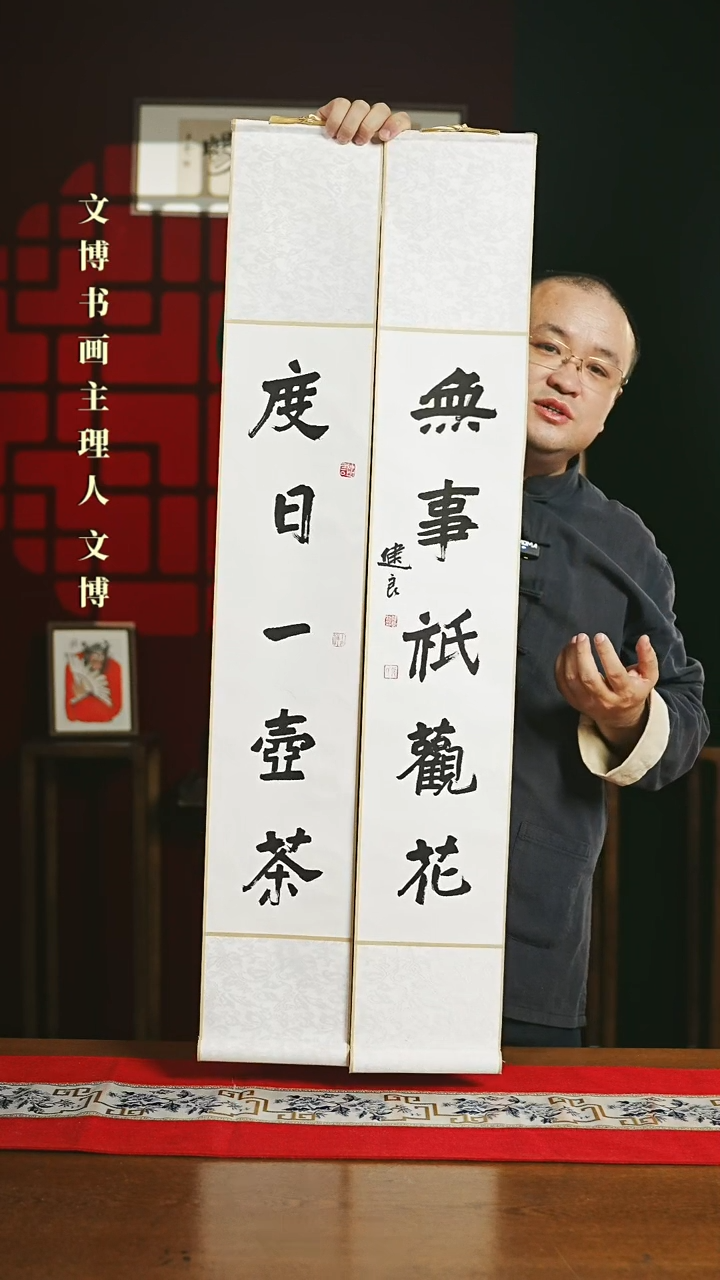 文博书画主理人文博
無事祇觀花
度日一壺茶
建良